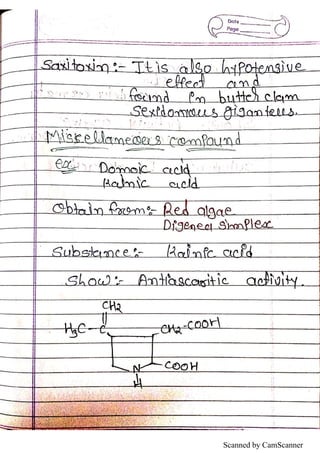 Date
Page
Saxitoxin :- It is also hypotensive
effect and
found in butter clam
Sexidomous giganteus.
Miscellaneous compound
ex:- Domoic acid
Kainic acid
Obtain from:- Red algae
Digenea Simplex
Substance :- Kainic acid
Show :- Antiascaritic activity.
CH2
H3C-C
CH2-COOH
COOH
N
H
Scanned by CamScanner